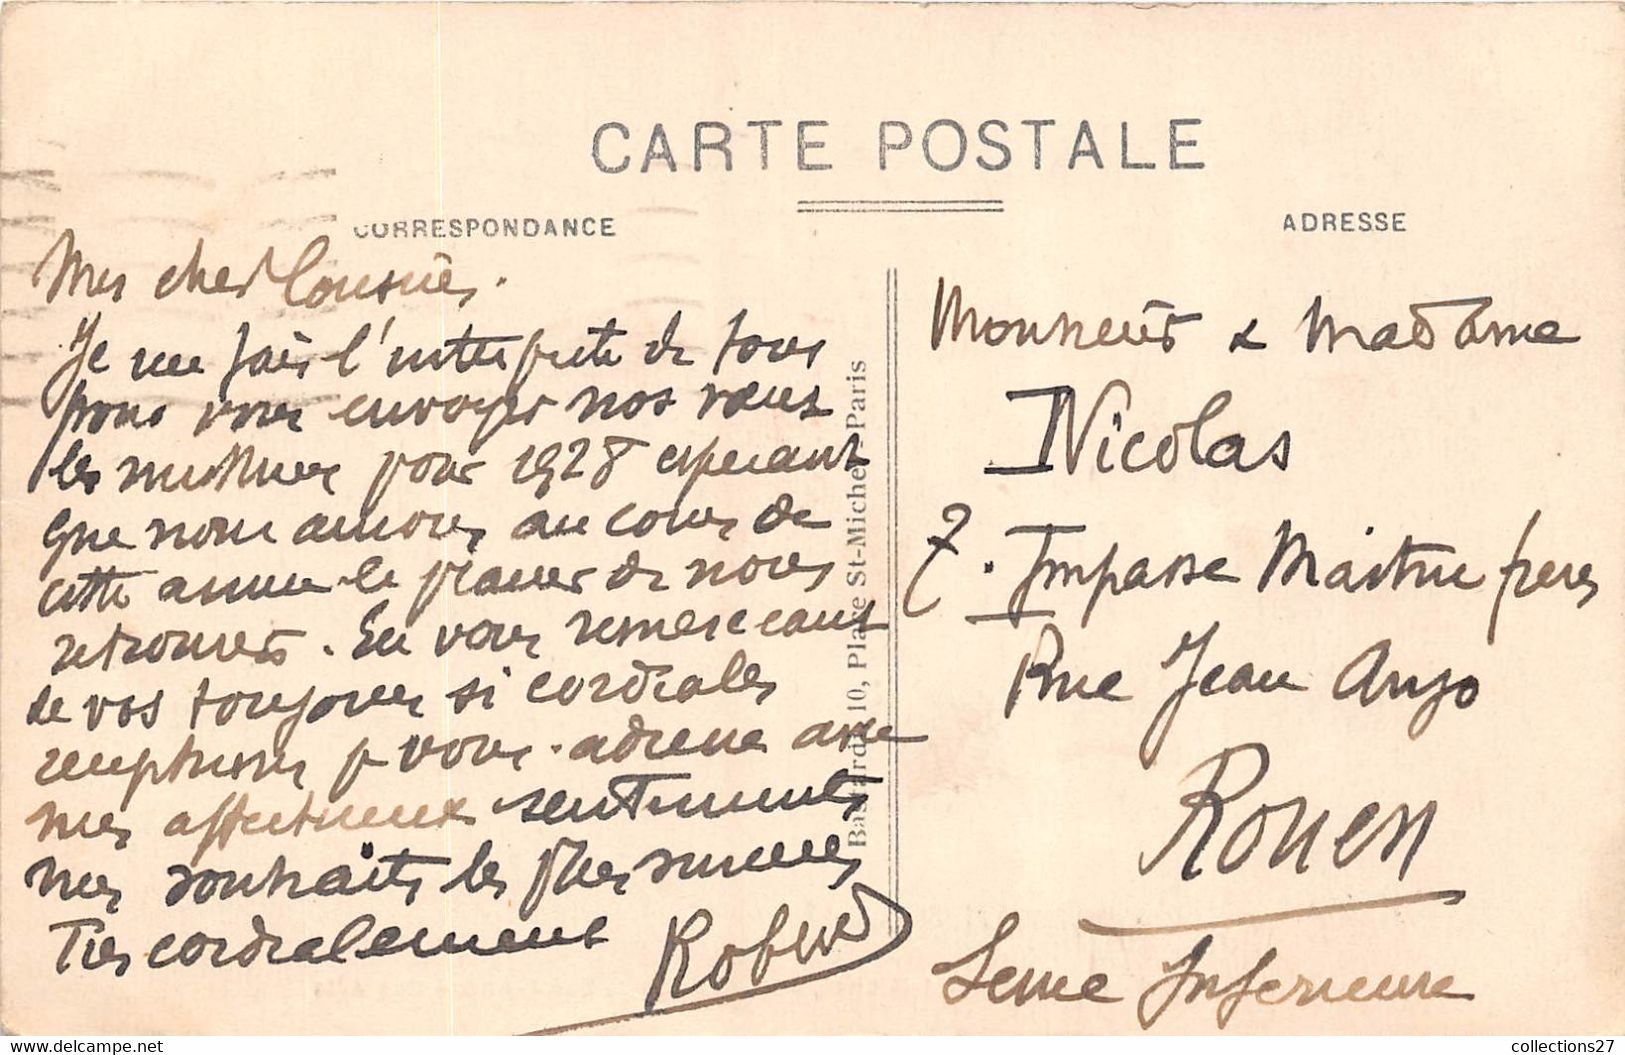 CARTE POSTALE
CORRESPONDANCE
ADRESSE
Mes chers Cousins.
Je me fais l'interprète de tous
pour vous envoyer nos vœux
les meilleurs pour 1928 espérant
que nous aurons au cours de
cette année le plaisir de nous
retrouver. En vous remerciant
de vos toujours si cordiales
vous adresse avec
mes affectueux sentiments
mes souhaits les plus sincères
Très cordialement
Robert
10, Place St-Michel-Paris
Monsieur & Madame
Nicolas
7. Impasse Maitre frères
Rue Jean Ango
Rouen
Seine Inferieure
collections27